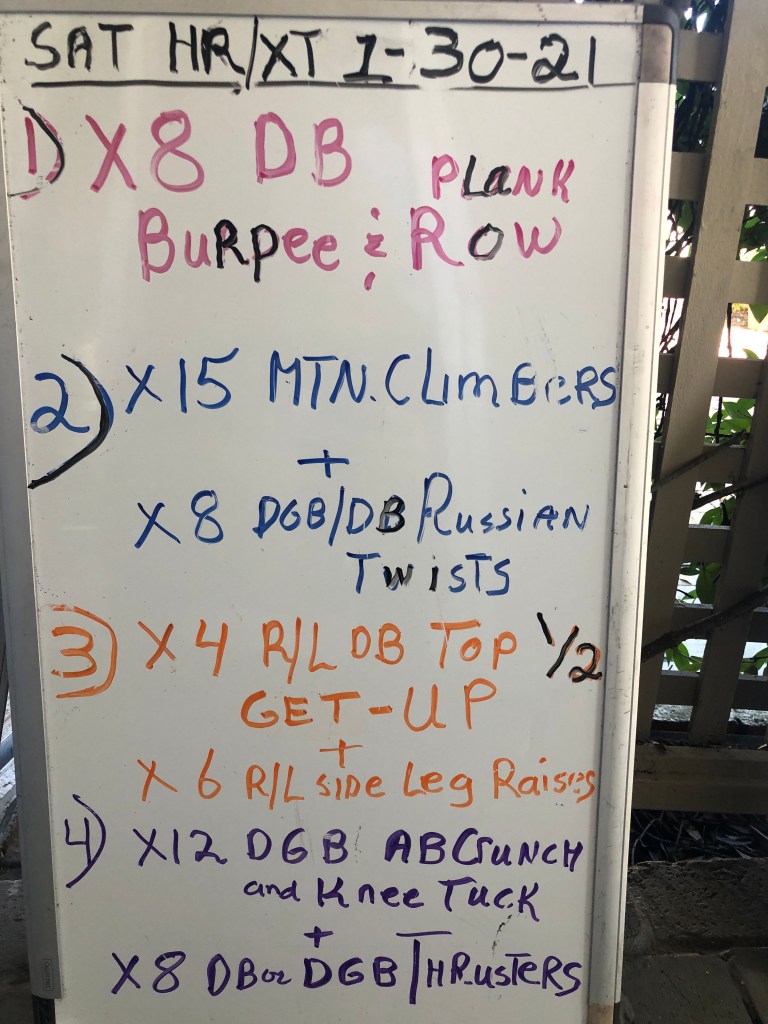 SAT HR/XT 1-30-21
1) X8 DB PLANK
BURPee & ROW
2) X15 MTN. CLIMBERS
+
X8 DGB/DB RUSSIAN
TWISTS
3) X4 R/L DB TOP 1/2
GET-UP
+
X6 R/L SIDE Leg Raises
4) X12 DGB AB CRUNCH
and Knee TUCK
+
X8 DB or DGB THRUSTERS